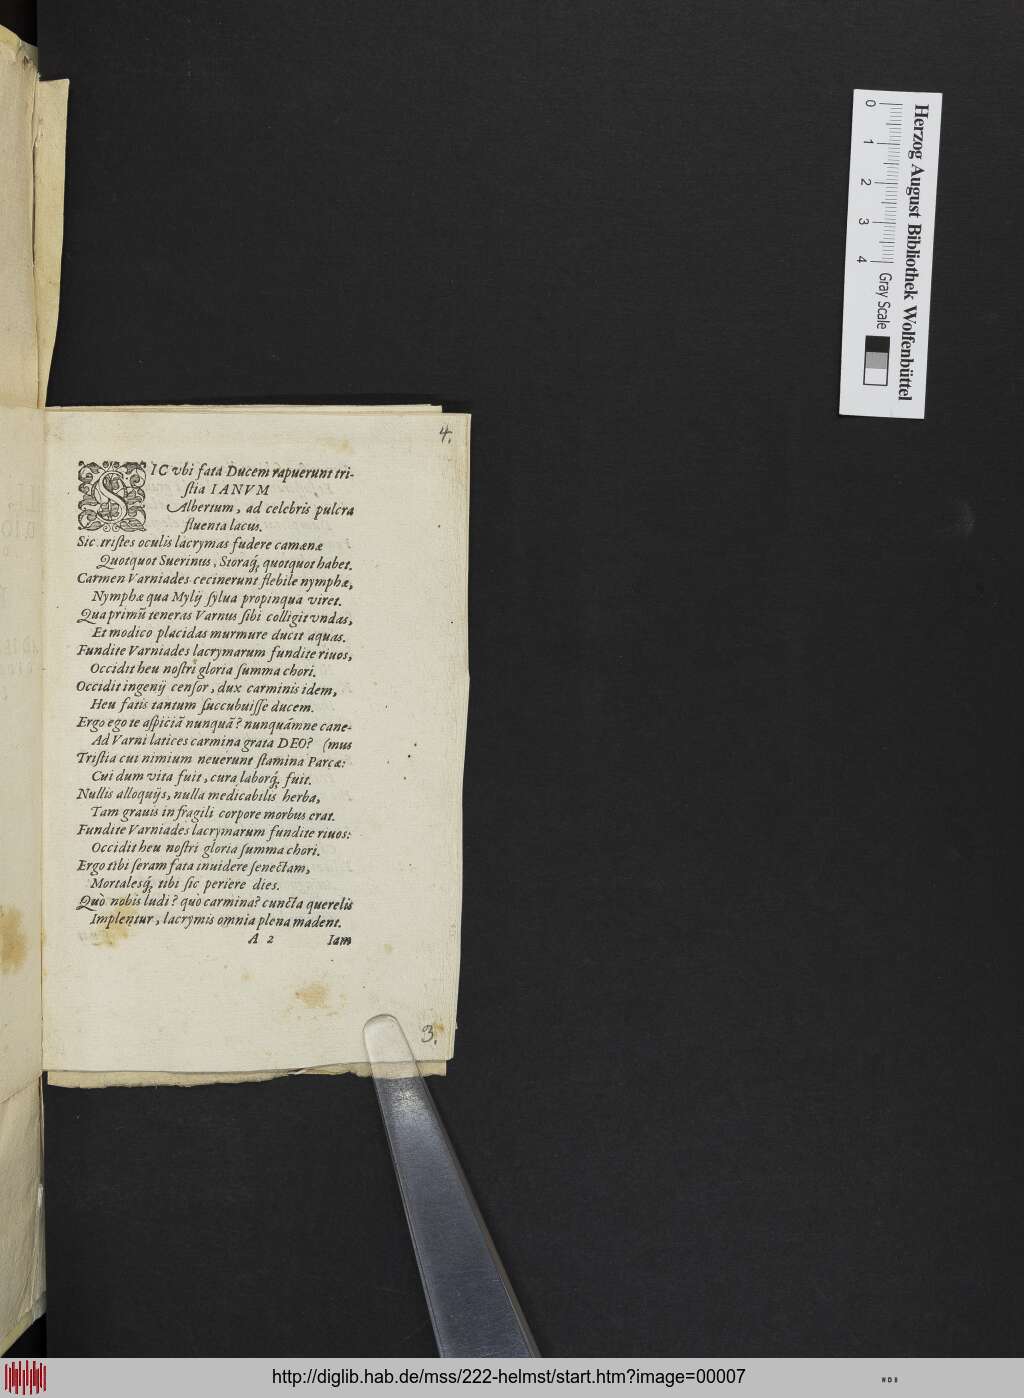 4.
SIC vbi fata Ducem rapuerunt tri-
ſtia IANVM
Albertum, ad celebris pulcra
fluenta lacus.
Sic triſtes oculis lacrymas fudere camænæ
Quotquot Suerinus, Storaq́, quotquot habet.
Carmen Varniades cecinerunt flebile nymphæ,
Nymphæ qua Mylij ſylua propinqua viret.
Qua primũ teneras Varnus ſibi colligit vndas,
Et modico placidas murmure ducit aquas.
Fundite Varniades lacrymarum fundite riuos,
Occidit heu noſtri gloria ſumma chori.
Occidit ingenij cenſor, dux carminis idem,
Heu fatis tantum ſuccubuiſſe ducem.
Ergo ego te aſpiciã nunquã? nunquámne cane-
Ad Varni latices carmina grata DEO? (mus
Triſtia cui nimium neuerunt ſtamina Parcæ:
Cui dum vita fuit, cura laborq́, fuit.
Nullis alloquijs, nulla medicabilis herba,
Tam grauis in fragili corpore morbus erat.
Fundite Varniades lacrymarum fundite riuos:
Occidit heu noſtri gloria ſumma chori.
Ergo tibi ſeram fata inuidere ſenectam,
Mortalesq́, tibi ſic periere dies.
Quò nobis ludi? quò carmina? cuncta querelis
Implentur, lacrymis omnia plena madent.
A 2 Iam
3.
Herzog August Bibliothek Wolfenbüttel
0 1 2 3 4 Gray Scale
http://diglib.hab.de/mss/222-helmst/start.htm?image=00007